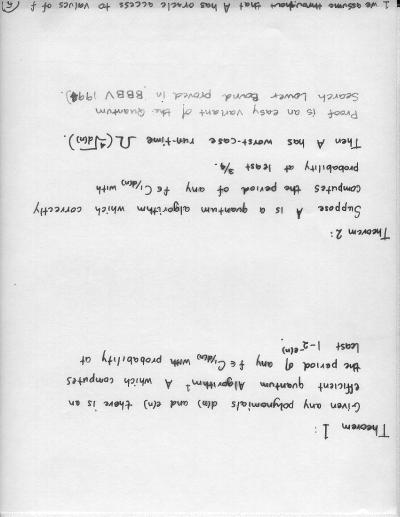 Theorem 1:
Given any polynomials d(n) and e(n) there is an
efficient quantum Algorithm¹ A which computes
the period of any f ∈ C₁,₁/d(n) with probability at
least 1-2⁻ᵉ⁽ⁿ⁾.
Theorem 2:
Suppose A is a quantum algorithm which correctly
computes the period of any f ∈ C₁,₁/d(n) with
probability at least 3/4.
Then A has worst-case run-time Ω(∜d(n)).
Proof is an easy variant of the Quantum
Search Lower Bound proved in BBBV
1 we assume throughout that A has oracle access to values of f